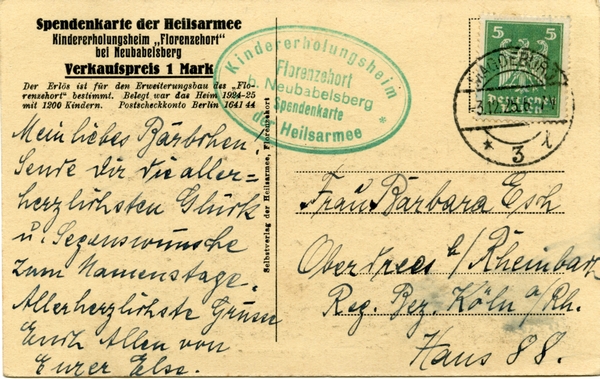 Spendenkarte der Heilsarmee
Kindererholungsheim „Florenzehort"
bei Neubabelsberg
Verkaufspreis 1 Mark
Der Erlös ist für den Erweiterungsbau des „Flo-
renzehort" bestimmt. Belegt war das Heim 1924-25
mit 1200 Kindern. Postscheckkonto Berlin 1641 44
Mein liebes Bärbchen!
Sende Dir die aller=
herzlichsten Glück
u. Segenswünsche
zum Namenstage.
Allerherzlichste Grüsse
Euch Allen von
Eurer Else.
Selbstverlag der Heilsarmee, Florenzehort
Kindererholungsheim
Florenzehort
b. Neubabelsberg
Spendenkarte
der Heilsarmee *
5 5
MAGDEBURG
3.12.25.
* 3 l
Frau Barbara Esch
Oberdrees b/Rheinbach
Reg. Bez. Köln a/Rh.
Haus 88.